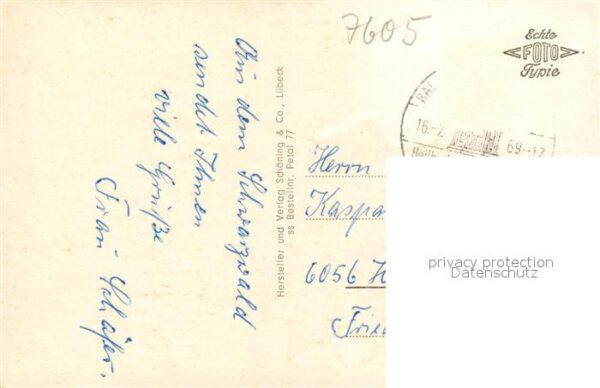 7605
Echte
FOTO
Typie
BAD
16.-7. 69.-17
Heilb
Aus dem Schwarzwald
sendet Ihnen
viele Grüße
Frau Schäfer.
Hersteller und Verlag Schöning & Co., Lübeck
ss Bestellnr. Petal 77
Herrn
Kaspa
6056 H
Fried
privacy protection
Datenschutz